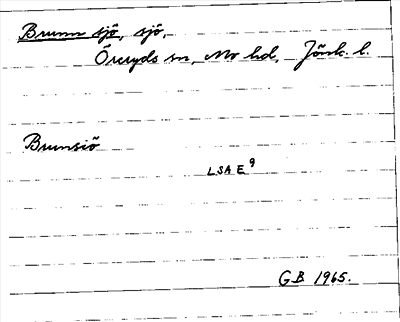 Brunn sjö, sjö,
Öreryds sn, Mo hd, Jönk. l.
Brunsiö
LSA E 9
GB 1965.